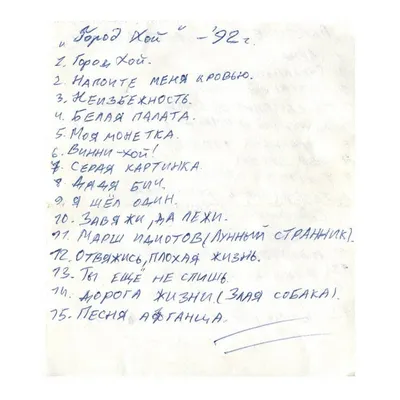 "Город Хой" – '92 г.
1. Город Хой.
2. Напоите меня кровью.
3. Неизбежность.
4. Белая палата.
5. Моя монетка.
6. Винни-Хой!
7. Серая картинка
8. Дядя Бич.
9. Я шёл один.
10. Завяжи, да лежи.
11. Марш идиотов (Лунный странник).
12. Отвяжись, плохая жизнь.
13. Ты ещё не слишь.
14. Дорога жизни. (Злая собака).
15. Песня афганца.